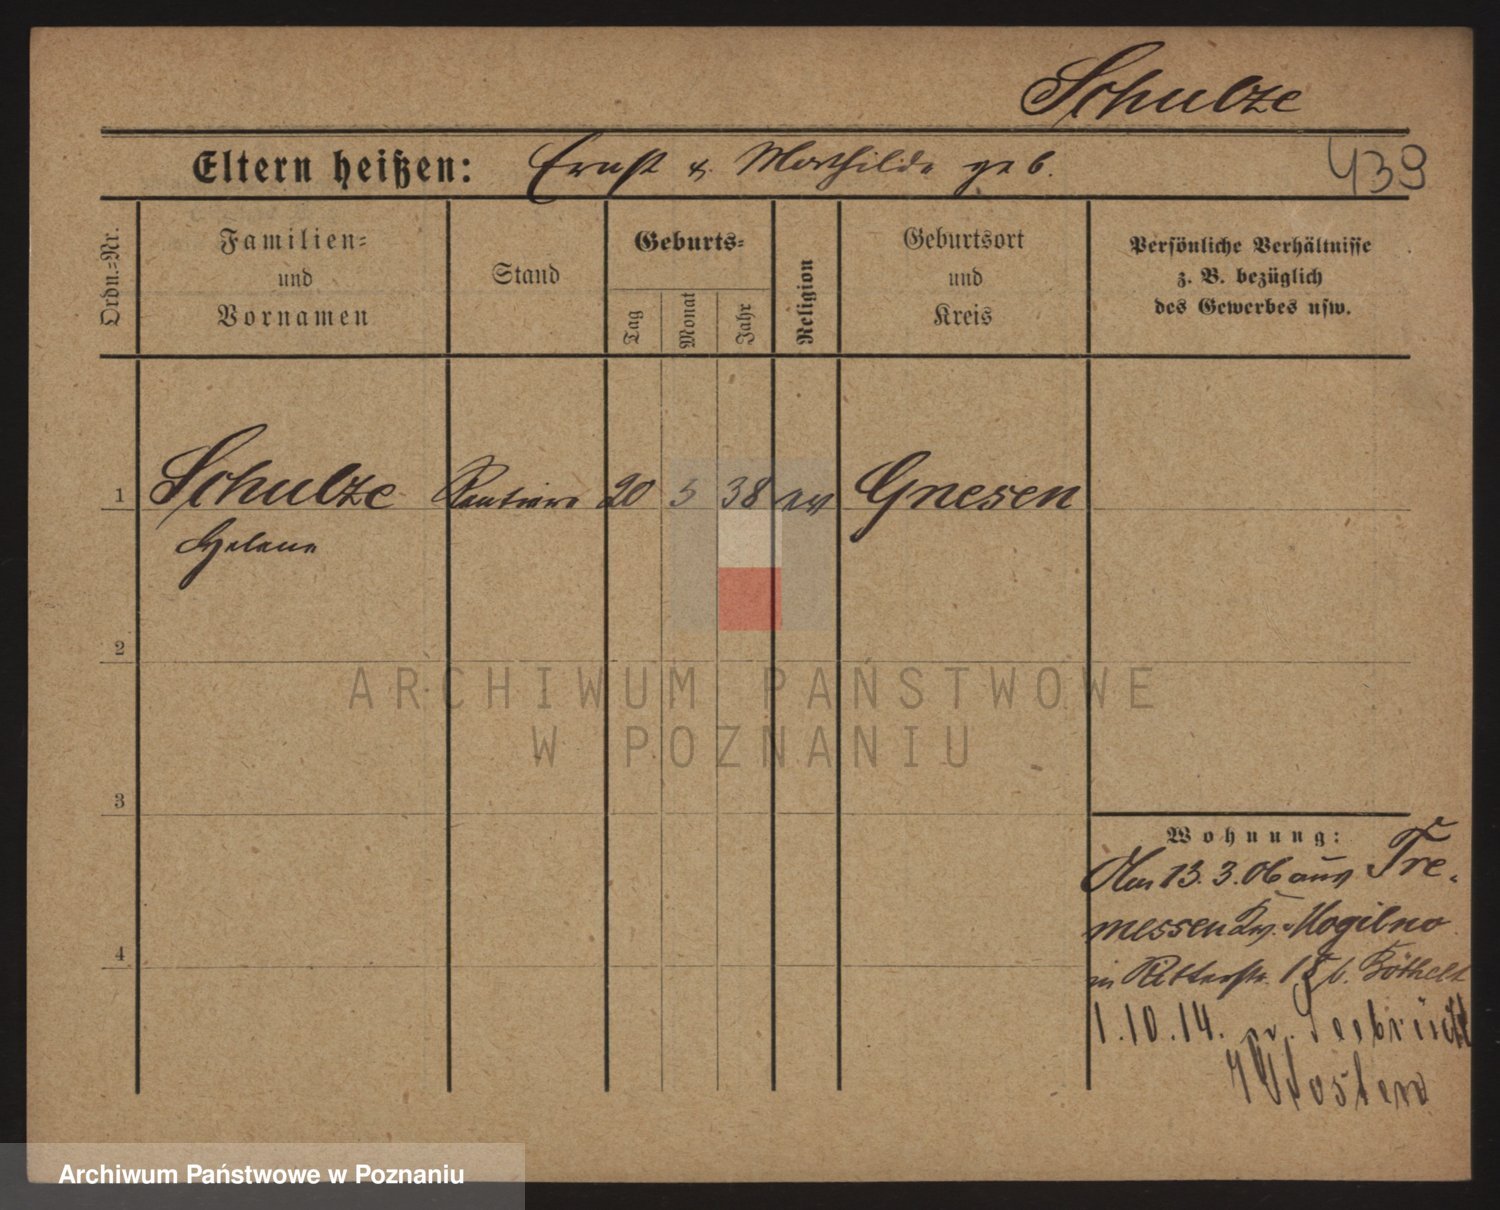 Schulze
Eltern heißen: Ernst u. Mathilde geb.
439
Ordn.=Nr.
Familien=
und
Vornamen
Stand
Geburts=
Tag
Monat
Jahr
Religion
Geburtsort
und
Kreis
Persönliche Verhältnisse
z. B. bezüglich
des Gewerbes usw.
1 Schulze Rentiere 20 5 38 ev Gnesen
Helene
2
3
4
Wohnung:
13.3.06 aus Tre-
messen Kr. Mogilno
in Ritterstr. b.
1.10.14.
ARCHIWUM PAŃSTWOWE
W POZNANIU
Archiwum Państwowe w Poznaniu